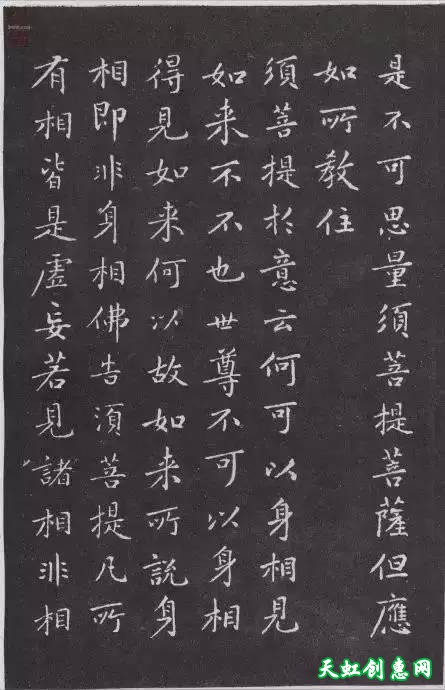 是不可思量須菩提菩薩但應
如所教住
須菩提於意云何可以身相見
如来不不也世尊不可以身相
得見如来何以故如来所說身
相即非身相佛告須菩提凡所
有相皆是虛妄若見諸相非相
天虹创惠网